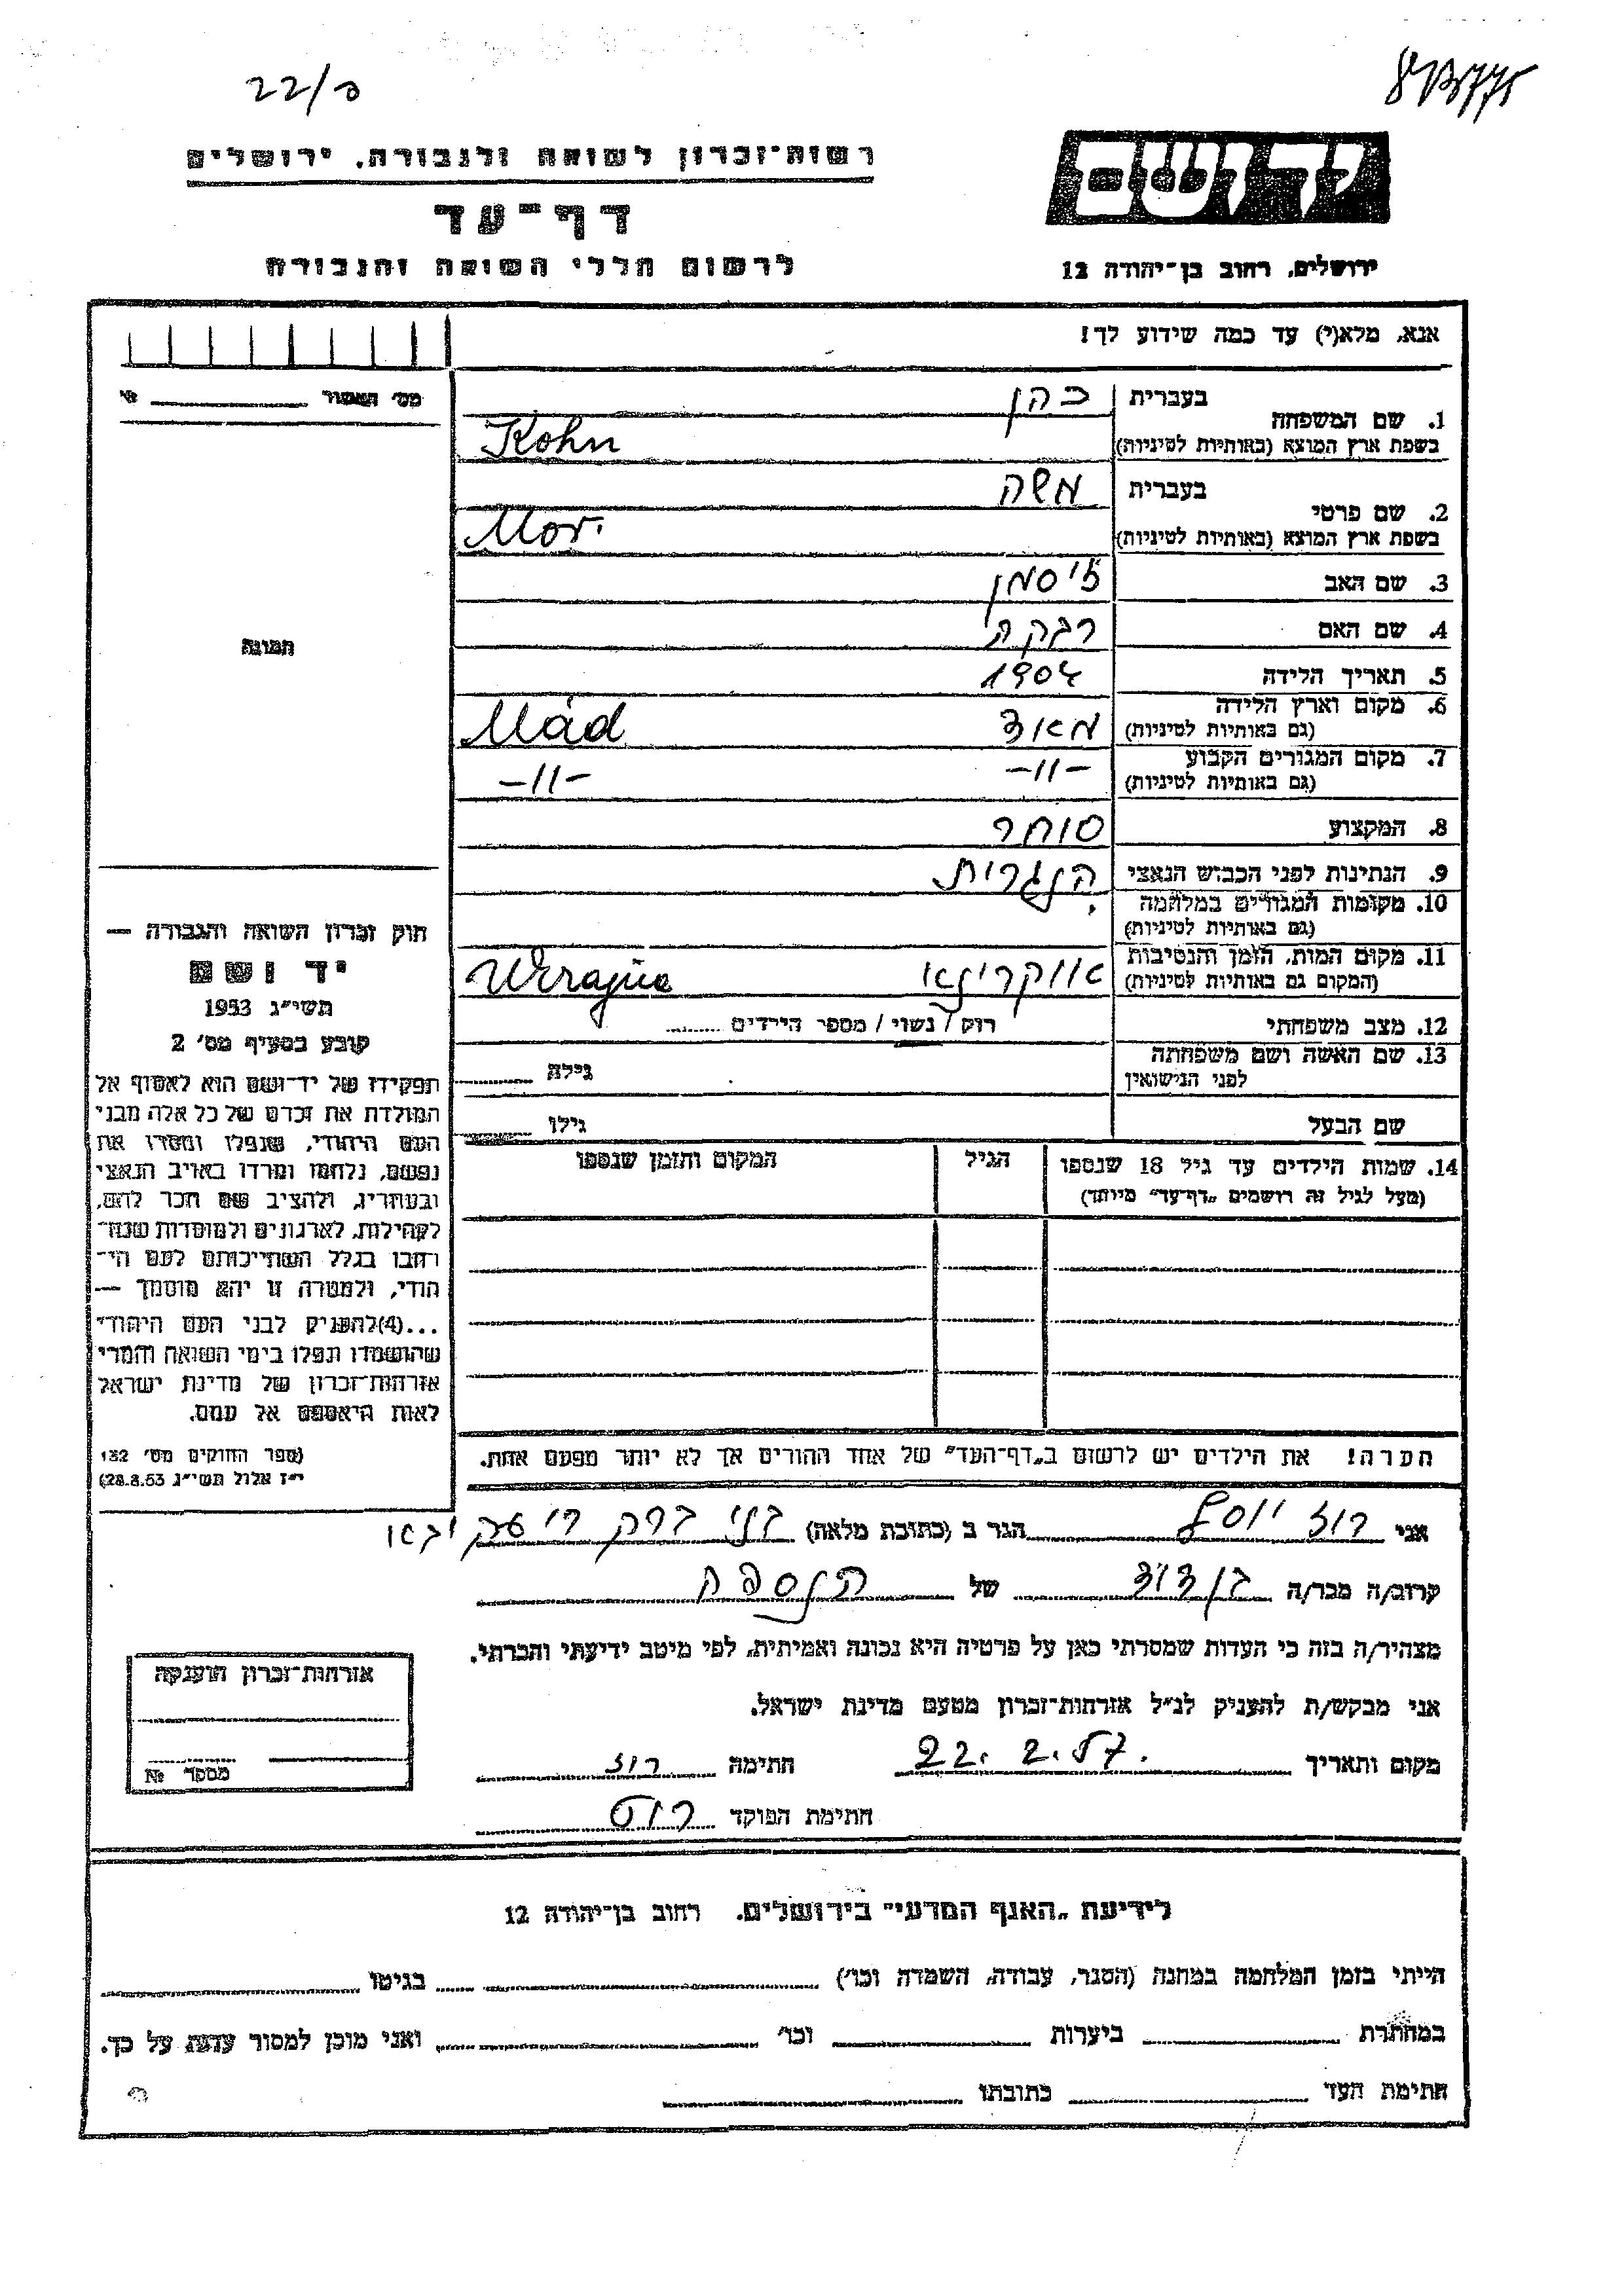 22/ם
רשות־זכרון לשואה ולגבורה, ירושלים
דף־עד
לרשום חללי השואה והגבורה
יד ושם
ירושלים, רחוב בן־יהודה 12
אנא, מלא(י) עד כמה שידוע לך!
מס' האשור №
1. שם המשפחה
בעברית כהן
בשפת ארץ המוצא (באותיות לטיניות) Kohn
2. שם פרטי
בעברית משה
בשפת ארץ המוצא (באותיות לטיניות) Mor.
3. שם האב זיסמן
4. שם האם רבקה
5. תאריך הלידה 1904
6. מקום וארץ הלידה מאד Mád
(גם באותיות לטיניות)
7. מקום המגורים הקבוע -11- -11-
(גם באותיות לטיניות)
8. המקצוע סוחר
9. הנתינות לפני הכבוש הנאצי הונגרית
10. מקומות המגורים במלחמה
(גם באותיות לטיניות)
11. מקום המות, הזמן והנסיבות אוקריינא Ukrajna
(המקום גם באותיות לטיניות)
12. מצב משפחתי רוק / נשוי / מספר הילדים
13. שם האשה ושם משפחתה גילה
לפני הנישואין
שם הבעל גילו
14. שמות הילדים עד גיל 18 שנספו הגיל המקום והזמן שנספו
(מעל לגיל זה רושמים „דף־עד" מיוחד)
תמונה
חוק זכרון השואה והגבורה —
יד ושם
תשי"ג 1953
קובע בסעיף מס' 2
תפקידו של יד־ושם הוא לאסוף אל
המולדת את זכרם של כל אלה מבני
העם היהודי, שנפלו ומסרו את
נפשם, נלחמו ומרדו באויב הנאצי
ובעוזריו, ולהציב שם וזכר להם,
לקהילות, לארגונים ולמוסדות שנח־
רבו בגלל השתייכותם לעם הי־
הודי, ולמטרה זו יהא מוסמך —
...(4) להעניק לבני העם היהודי
שהושמדו ונפלו בימי השואה והמרי
אזרחות־זכרון של מדינת ישראל
לאות היאספם אל עמם.
(ספר החוקים מס' 132
י"ז אלול תשי"ג 28.8.53)
הערה! את הילדים יש לרשום ב„דף־העד" של אחד ההורים אך לא יותר מפעם אחת.
אני רוז יוסף הגר ב (כתובת מלאה) בני ברק
קרוב/ה מכר/ה בן דוד של הנספה
מצהיר/ה בזה כי העדות שמסרתי כאן על פרטיה היא נכונה ואמיתית, לפי מיטב ידיעתי והכרתי.
אני מבקש/ת להעניק לנ"ל אזרחות־זכרון מטעם מדינת ישראל.
מקום ותאריך 22. 2. 57. חתימה רוז
חתימת הפוקד
אזרחות־זכרון הוענקה
מספר №
לידיעת „האגף המדעי" בירושלים. רחוב בן־יהודה 12
הייתי בזמן המלחמה במחנה (הסגר, עבודה, השמדה וכו') בגיטו
במחתרת ביערות וכו' ואני מוכן למסור עדות על כך.
חתימת העד כתובתו